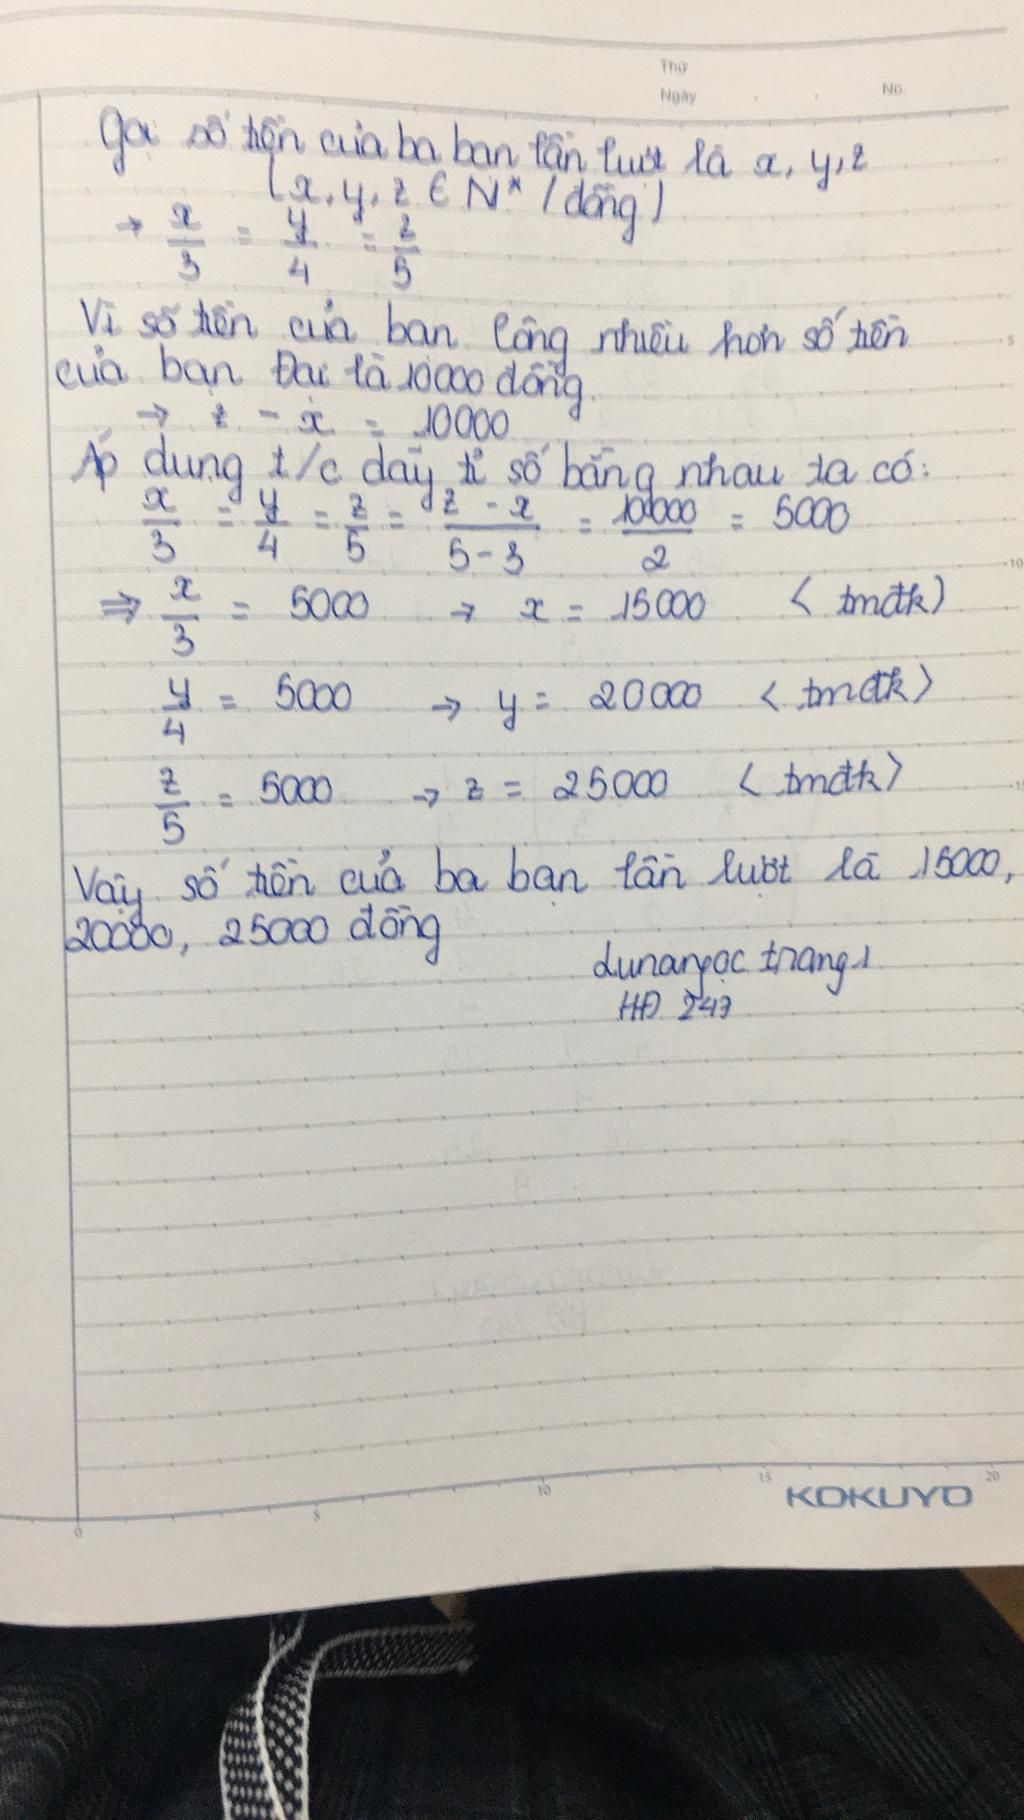 Thứ
Ngày . . No.
Gọi số tiền của ba bạn lần lượt là x, y, z
(x, y, z ∈ N* / đồng)
→ x/3 = y/4 = z/5
Vì số tiền của bạn Công nhiều hơn số tiền
của bạn Đại là 10000 đồng.
→ z - x = 10000
Áp dụng t/c dãy tỉ số bằng nhau ta có:
x/3 = y/4 = z/5 = (z - x)/(5 - 3) = 10000/2 = 5000
⇒ x/3 = 5000 → x = 15000 <tmđk)
y/4 = 5000 → y = 20000 <tmđk>
z/5 = 5000 → z = 25000 <tmđk>
Vậy số tiền của ba bạn lần lượt là 15000,
20000, 25000 đồng
lunangọc trang1
HĐ 247
5
10
15
0 5 10 15 20
KOKUYO